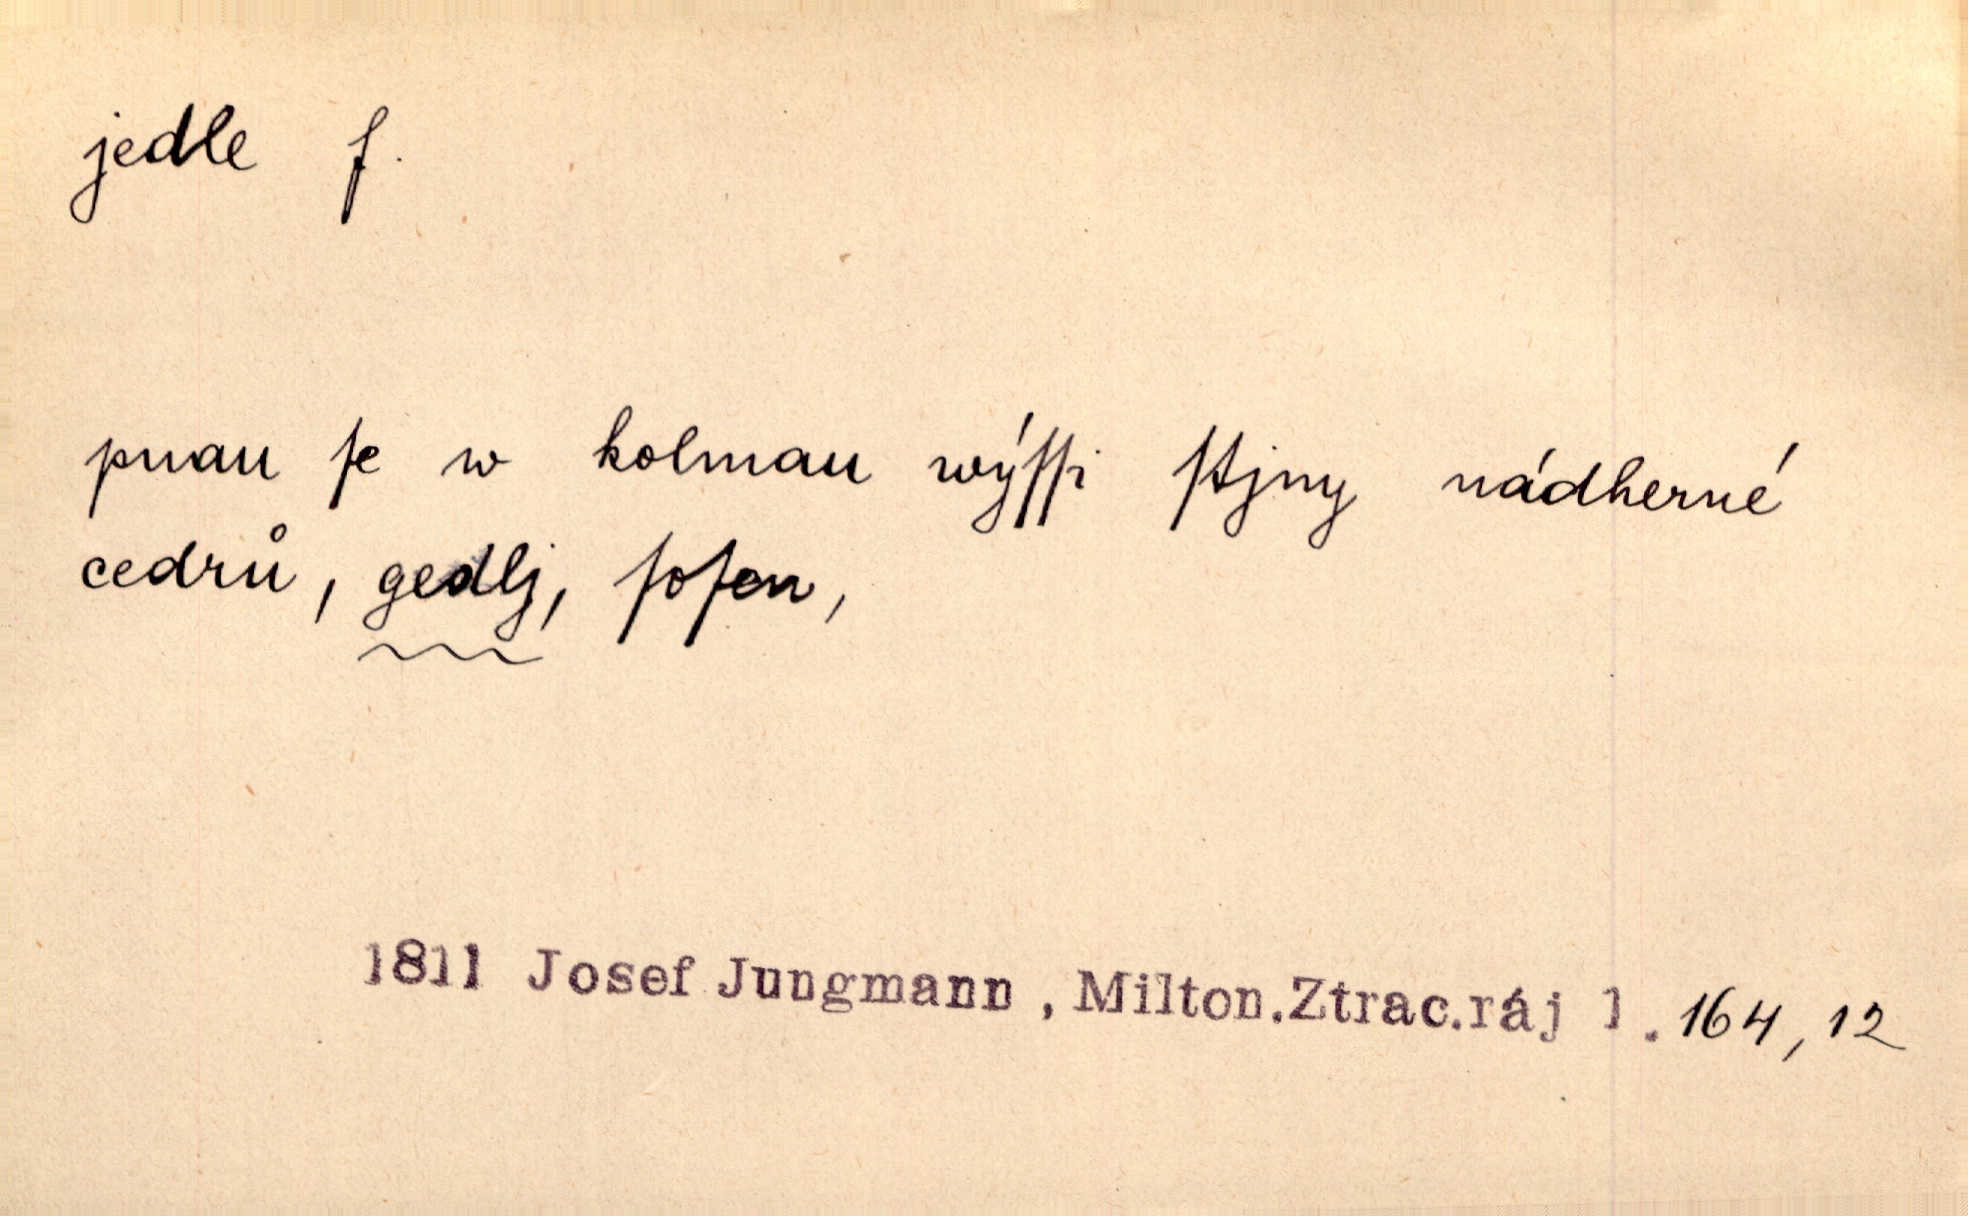 jedle f.
pnau ſe w kolmau wýſſi ſtjny nádherné
cedrů, gedlj, ſoſen,
1811 Josef Jungmann, Milton.Ztrac.ráj 1. 164, 12